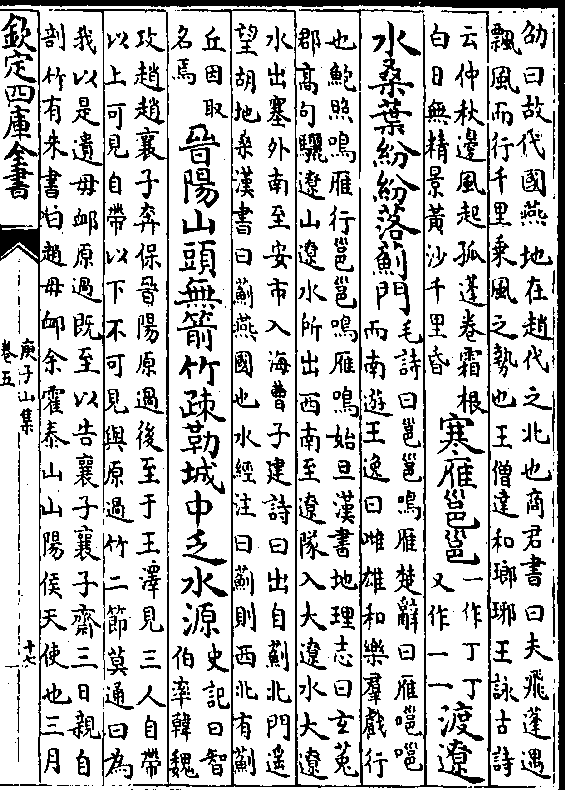 劭曰故代國燕地在趙代之北也商君書曰夫飛蓬遇
飄風而行千里乗風之勢也王僧達和瑯琊王詠古詩
云仲秋邊風起孤蓬卷霜根
白日無精景黃沙千里昏
寒雁邕邕
一作丁丁
又作一一
渡遼
水桑葉紛紛落薊門
毛詩曰邕邕鳴雁楚辭曰雁嗈嗈
而南遊王逸曰雌雄和樂羣戲行
也鮑照鳴雁行邕邕鳴雁鳴始旦漢書地理志曰玄莵
郡高句驪遼山遼水所出西南至遼隊入大遼水大遼
水出塞外南至安市入海曹子建詩曰出自薊北門遙
望胡地桑漢書曰薊燕國也水經注曰薊則西北有薊
丘因取
名焉
晉陽山頭無箭竹疎勒城中乏水源
史記曰智
伯率韓魏
攻趙趙襄子奔保晉陽原過後至于王澤見三人自帶
以上可見自帶以下不可見與原過竹二節莫通曰為
我以是遺毋卹原過既至以告襄子襄子齋三日親自
剖竹有朱書曰趙毋卹余霍泰山山陽侯天使也三月
欽定四庫全書
庾子山集
卷五
十七